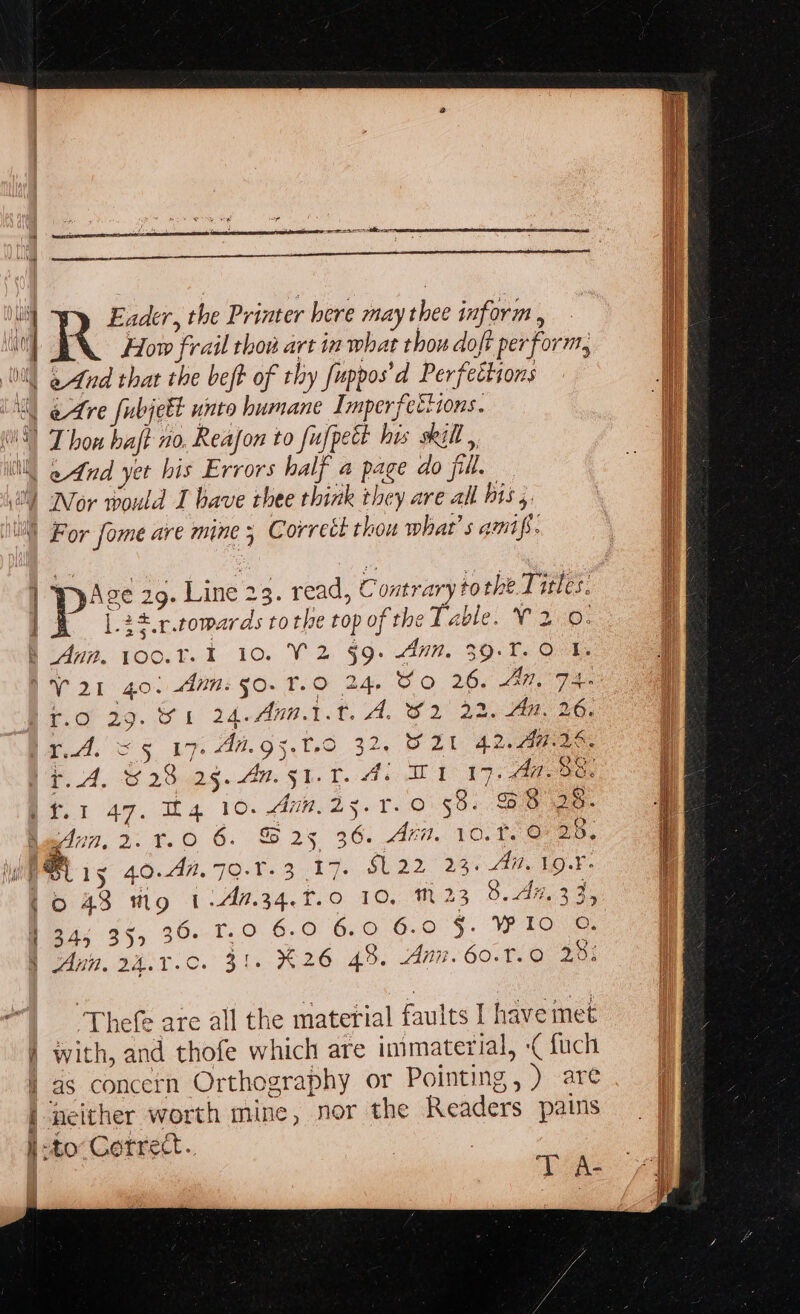 REader, the Printer here may thee inform,
How frail thou art in what thou dost perform,
And that the best of thy suppos'd Perfections
Are subjett unto humane Imperfections.
Thou hast no Reason to suspect his skill,
And yet his Errors half a page do fill.
Nor would I have thee think they are all his;
For some are mine; Correct thou what's amiss.
PAge 29. Line 23. read, Contrary to the Titles.
r. towards to the top of the Table. ♈ 2 0.
Ann. 100. r. 1 10. ♈ 2 59. Ann. 39. r. 0 1.
♈ 21 40. Ann. 50. r. 0 24. ♉ 0 26. An. 74.
r. 0 29. ♉ 1 24. Ann. 1. r. A. ♉ 2 22. An. 26.
r. A. ♉ 5 17. An. 95. r. 0 32. ♉ 21 42. An. 26.
r. A. ♉ 28 25. An. 51. r. A. ♊ 1 17. An. 88.
r. 1 47. ♊ 4 10. Ann. 25. r. 0 58. ♋ 8 28.
Ann. 2. r. 0 6. ♋ 25 36. Ann. 10. r. 0 28.
♌ 15 40. An. 70. r. 3 17. ♌ 22 23. An. 19. r.
0 43 ♍ 9 1. An. 34. r. 0 10. ♍ 23 8. An. 33,
34, 35, 36. r. 0 6. 0 6. 0 6. 0 5. 10 0.
Ann. 24. r. 0. 31. ♓ 26 48. Ann. 60. r. 0 28.
These are all the material faults I have met
with, and those which are immaterial, (such
as concern Orthography or Pointing,) are
neither worth mine, nor the Readers pains
to Correct.
TA-